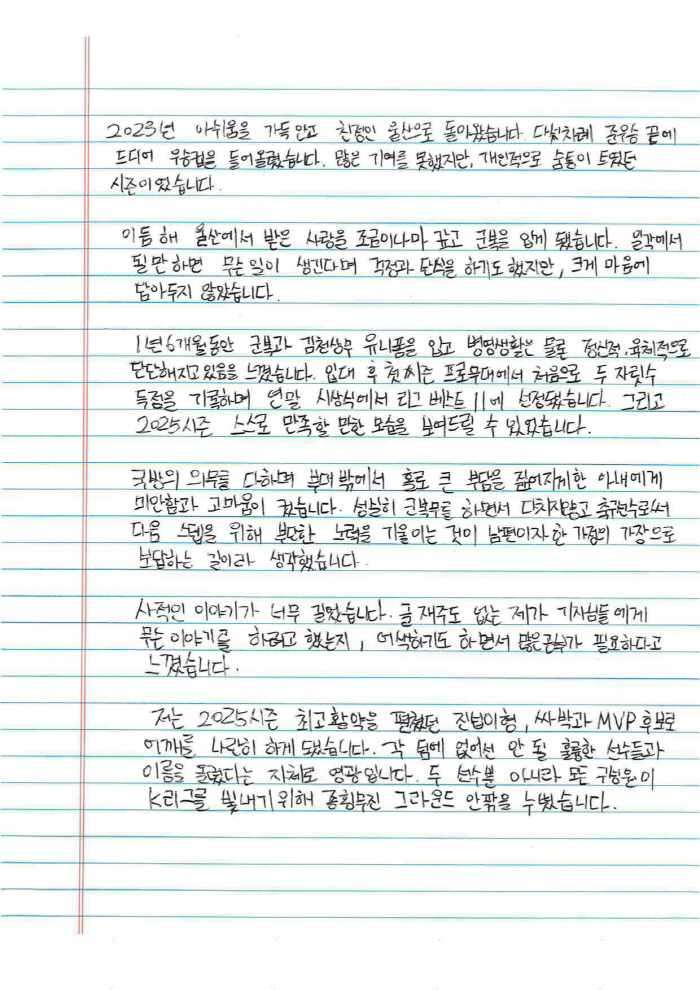 2023년 아쉬움을 가득 안고 친정인 울산으로 돌아왔습니다. 다섯차례 준우승 끝에
드디어 우승컵을 들어올렸습니다. 많은 기여를 못했지만, 개인적으로 숨통이 트였던
시즌이었습니다.
이듬해 울산에서 받은 사랑을 조금이나마 갚고 군복을 입게 됐습니다. 일각에서
필만하면 무슨 일이 생긴다며 걱정과 탄식을 하기도 했지만, 크게 마음에
담아두지 않았습니다.
1년 6개월동안 군복과 김천상무 유니폼을 입고 병영생활은 물론 정신적, 육체적으로
단단해지고 있음을 느꼈습니다. 입대 후 첫 시즌 프로무대에서 처음으로 두 자릿수
득점을 기록하며 연말 시상식에서 리그 베스트 11에 선정됐습니다. 그리고
2025시즌 스스로 만족할 만한 모습을 보여드릴 수 있었습니다.
국방의 의무를 다하며 부대 밖에서 홀로 큰 부담을 짊어지게한 아내에게
미안함과 고마움이 컸습니다. 성실히 군복무를 하면서 다치지않고 축구선수로써
다음 스텝을 위해 부단한 노력을 기울이는 것이 남편이자 한 가정의 가장으로
보답하는 길이라 생각했습니다.
사적인 이야기가 너무 길었습니다. 글 재주도 없는 제가 기자님들에게
무슨 이야기를 하려고 했는지, 어색하기도 하면서 많은 공부가 필요하다고
느꼈습니다.
저는 2025시즌 최고활약을 펼쳤던 진섭이형, 싸박과 MVP 후보로
어깨를 나란히 하게 됐습니다. 각 팀에 없어선 안 될 훌륭한 선수들과
이름을 올렸다는 자체로 영광입니다. 두 선수뿐 아니라 모든 구성원이
K리그를 빛내기 위해 종횡무진 그라운드 안팎을 누볐습니다.